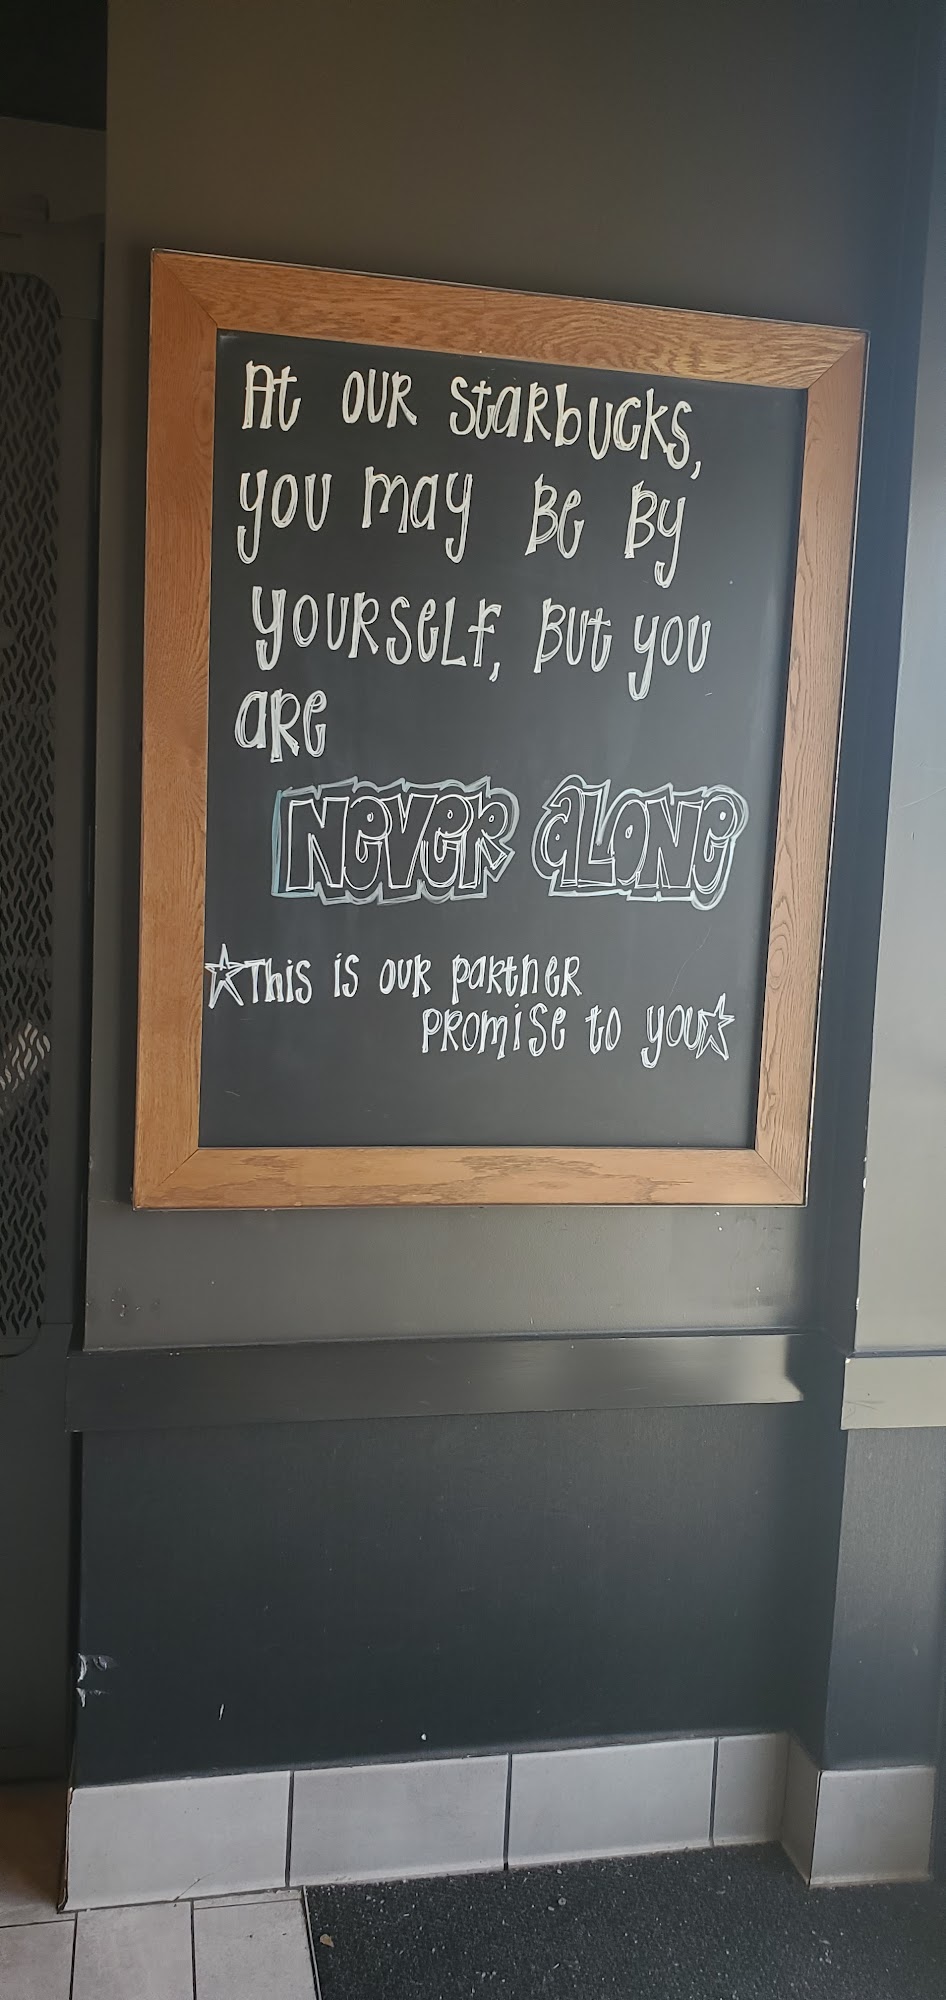 At our Starbucks,
you may be by
yourself, but you
are
NEVER ALONE
☆This is our partner
promise to you☆